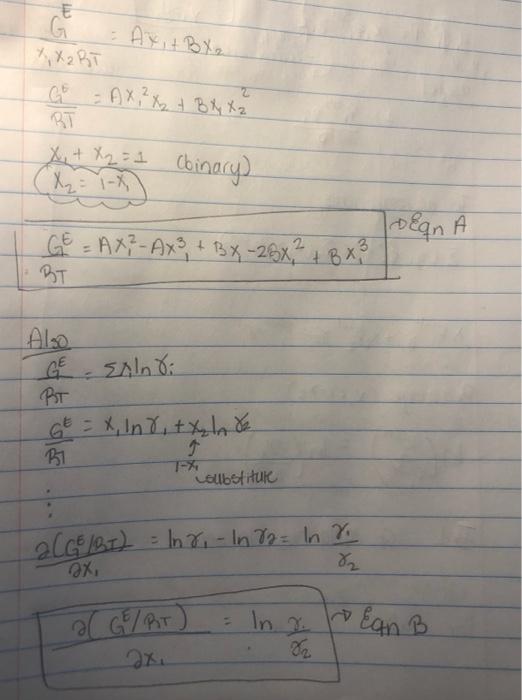 G^E / x₁x₂RT = Ax₁ + Bx₂
G^E / RT = Ax₁²x₂ + Bx₁x₂²
x₁ + x₂ = 1 (binary)
x₂ = 1-x₁
G^E / RT = Ax₁² - Ax₁³ + Bx₁ - 2Bx₁² + Bx₁³ → Eqn A
Also
G^E / RT = Σ ln γᵢ
G^E / RT = x₁ ln γ₁ + x₂ ln γ₂
↑
1-x₁
substitute
⋮
∂(G^E/RT) / ∂x₁ = ln γ₁ - ln γ₂ = ln γ₁ / γ₂
∂(G^E/RT) / ∂x₁ = ln γ₁ / γ₂ → Eqn B